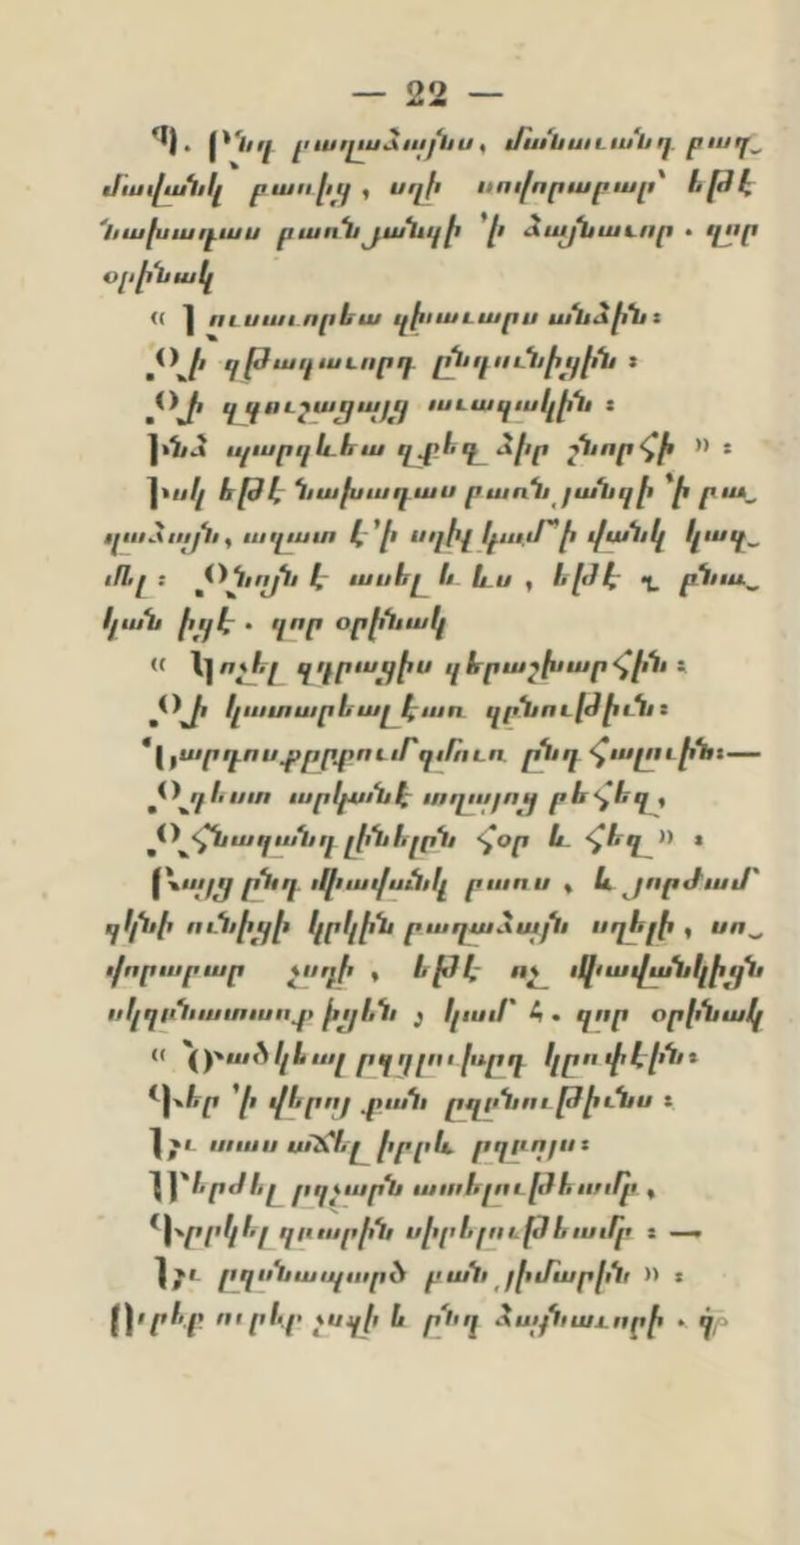 — 22 —
Պ. Ընդ բաղաձայնս, մանաւանդ բաղ֊
մավանկ բառից, սղի սովորաբար՝ եթէ
նախադաս բառն յանգի ՚ի ձայնաւոր. զոր
օրինակ
« Լուսաւորեա զխաւարս անձին։
Զի զթագաւորդ ընդունիցին։
Զի զգուշացայց աւազակին։
Ինձ պարգևեա զքեզ ձիր շնորհի »։
Իսկ եթէ նախադաս բառն յանգի ՚ի բա֊
ղաձայն, ազատ է ՚ի սղիլ կամ ՚ի վանկ կազ֊
մել։ Զնոյն է ասել և ևս, եթէ զ բնա֊
կան իցէ. զոր օրինակ
« Կոչել զդրացիս զերաշխարհին։
Զի կատարեալ էառ զբնութիւն։
Նարդոսքըրքում զմուռ ընդ հալուին։—
Զգեստ արկանէ տղայոց բեհեզ,
Զհնազանդ լինելըն հօր և հեզ »։
Բայց ընդ միավանկ բառս, և յորժամ
զկնի ունիցի կրկին բաղաձայն սղելի, սո֊
վորաբար չսղի, եթէ ոչ միավանկիցն
սկզբնատառք իցեն յ կամ հ. զոր օրինակ
« Ծածկեալ ըզգլուխըդ կըռփէին։
Գեր ՚ի վերոյ քան ըզբնութիւնս։
Եւ տաս աճել իբրև ըզբոյս։
Մերժել ըզչարն ատելութեամբ,
Գըրկել զբարին սիրելութեամբ։ —
Եւ ըզսնապարծ բան յիմարին »։
Ուրեք ուրեք չսղի և ընդ ձայնաւորի. զր